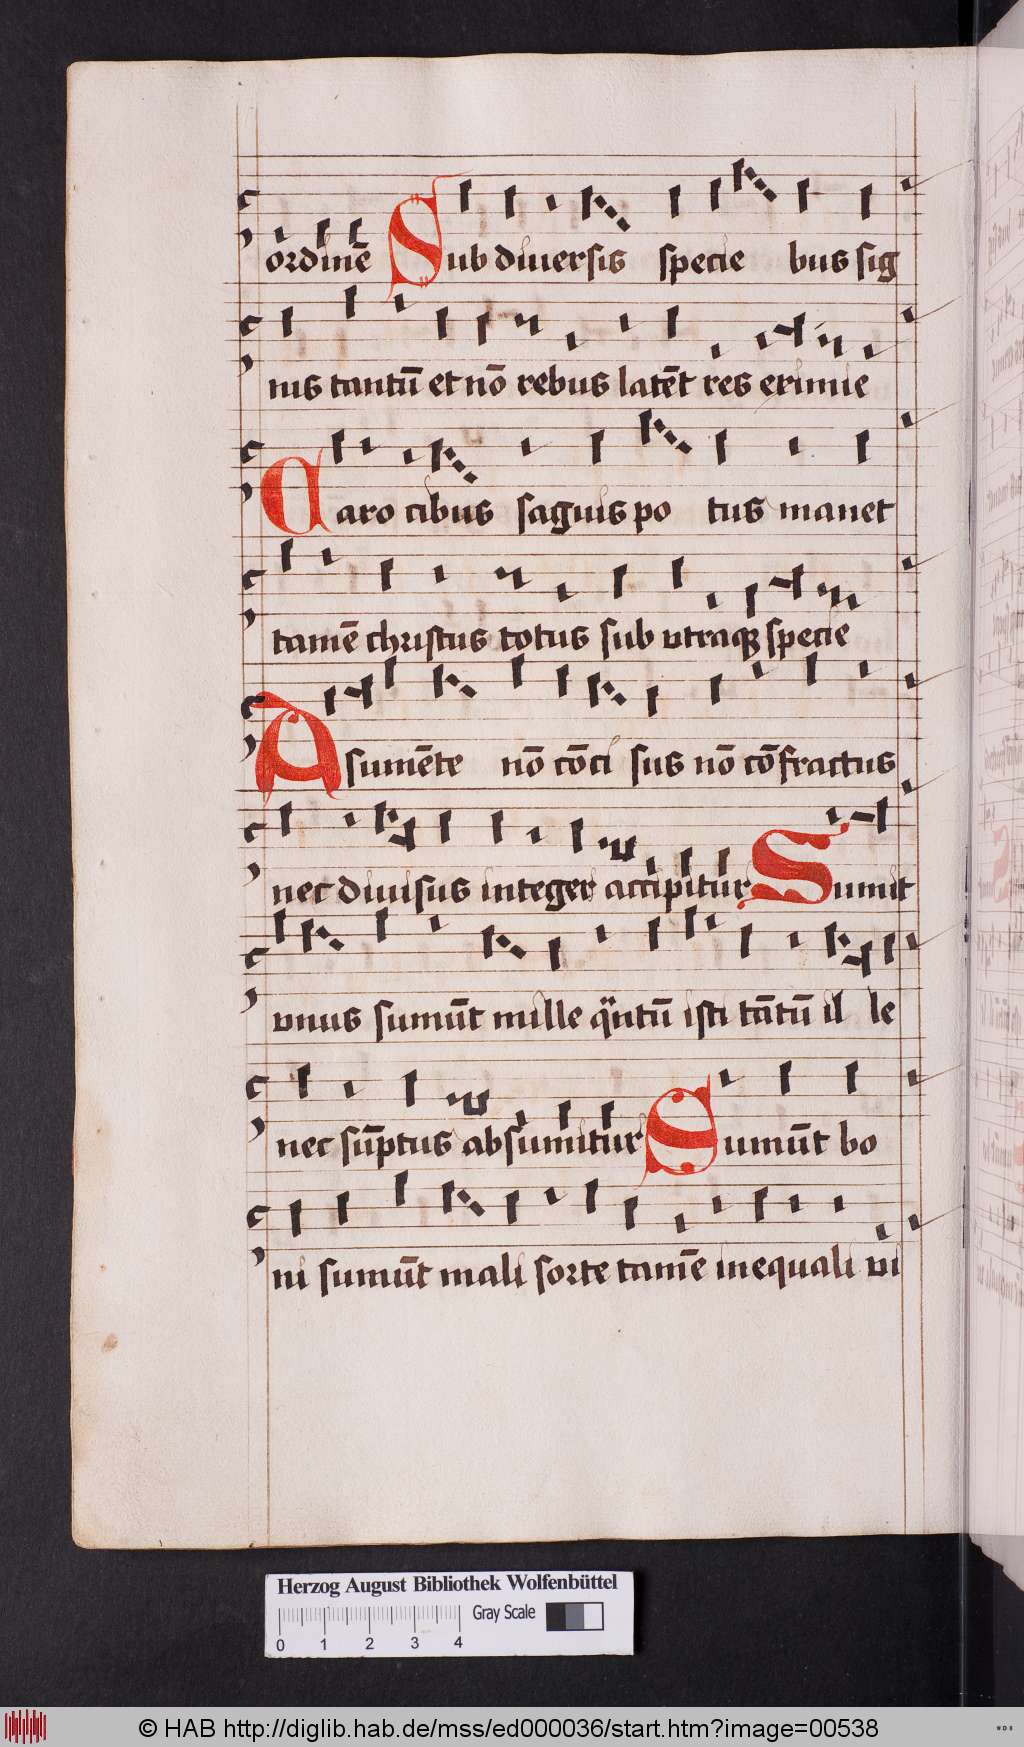 ordinē Sub diuersis specie bus sig
nis tantū et nō rebus latēt res eximie
Caro cibus saguis po tus manet
tamē christus totus sub vtraqꝫ specie
A sumēte nō cōci sus nō cōfractus
nec diuisus integer accipitur Sumit
vnus sumūt mille qͣntū isti tātū il le
nec sūptus absumitur Sumūt bo
ni sumūt mali sorte tamē inequali vi
Herzog August Bibliothek Wolfenbüttel
Gray Scale
0 1 2 3 4
© HAB http://diglib.hab.de/mss/ed000036/start.htm?image=00538